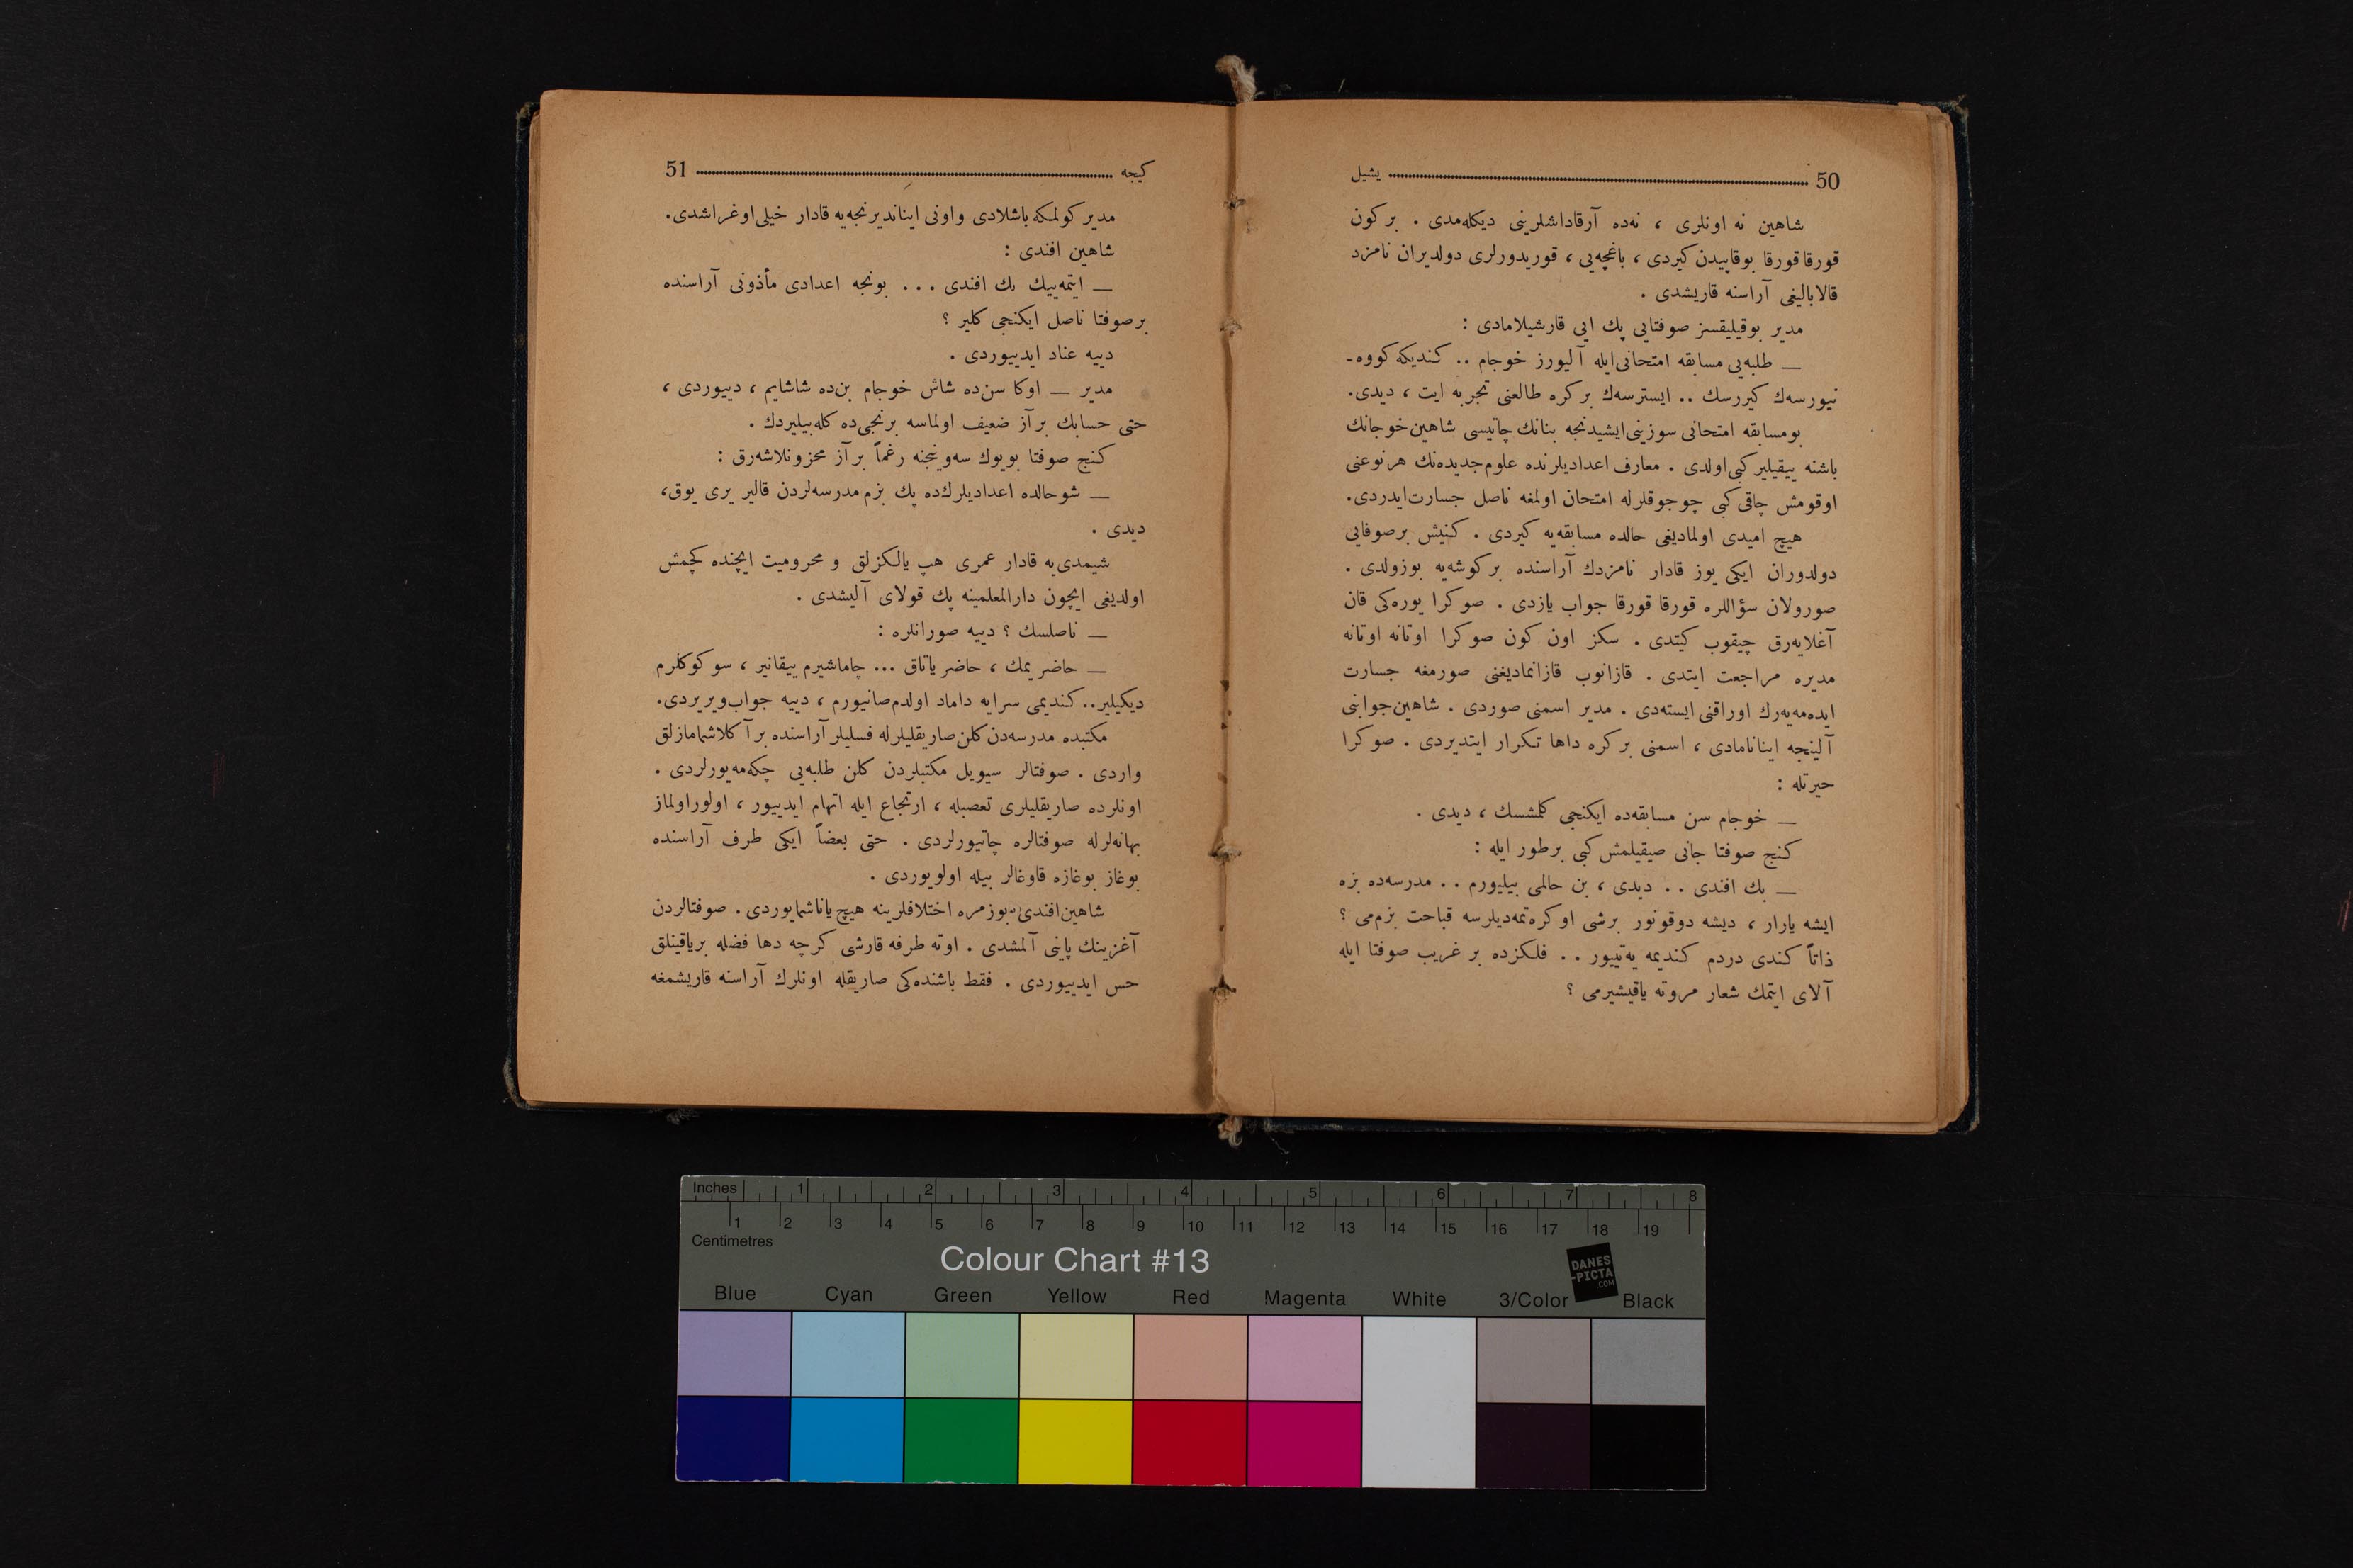 50 يشيل
شاهين نه اونلری ، نه‌ده آرقاداشلرينی ديكله‌مدی . بر كون
قورقا قورقا بوقاپيدن كيردی ، باغچه‌يی ، قوريدورلری دولديران نامزد
قالاباليغی آراسنه قاريشدی .
مدير بوقيليقسز صوفتايی پك ايی قارشيلامادی :
— طلبه‌يی مسابقه امتحانی ايله آليورز خوجام .. كنديكه كووه‌ـ
نيورسه‌ك كيررسك .. ايسترسه‌ك بر كره طالعنی تجربه ايت ، ديدی.
بومسابقه امتحانی سوزينی ايشيدنجه بنانك چاتيسی شاهين خوجانك
باشنه ييقيلير كبی اولدی . معارف اعداديلرنده علوم جديده‌نك هر نوعنی
اوقومش چاقی كبی چوجوقلرله امتحان اولمغه ناصل جسارت ايدردی.
هيچ اميدی اولماديغی حالده مسابقه‌يه كيردی . كنيش برصوفايی
دولدوران ايكی يوز قادار نامزدك آراسنده بر كوشه‌يه بوزولدی .
صورولان سؤاللره قورقا قورقا جواب يازدی . صوكرا يوره‌كی قان
آغلايه‌رق چيقوب كيتدی . سكز اون كون صوكرا اوتانه اوتانه
مديره مراجعت ايتدی . قازانوب قازانماديغنی صورمغه جسارت
ايده‌مه‌يه‌رك اوراقنی ايسته‌دی . مدير اسمنی صوردی . شاهين جوابنی
آلينجه اينانامادی ، اسمنی بر كره داها تكرار ايتديردی . صوكرا
حيرتله :
— خوجام سن مسابقه‌ده ايكنجی كلمشسك ، ديدی .
كنج صوفتا جانی صيقيلمش كبی برطور ايله :
— بك افندی .. ديدی ، بن حالمی بيليورم .. مدرسه‌ده بزه
ايشه يارار ، ديشه دوقونور برشی اوكره‌تمه‌ديلرسه قباحت بزم‌می ؟
ذاتاً كندی دردم كنديمه يه‌تييور .. فلكزده بر غريب صوفتا ايله
آلای ايتمك شعار مروته ياقيشيرمی ؟
كيجه 51
مدير كولمكه باشلادی و اونی اينانديرنجه‌يه قادار خيلی اوغراشدی.
شاهين افندی :
— ايتمه‌ييك بك افندی ... بونجه اعدادی مأذونی آراسنده
برصوفتا ناصل ايكنجی كلير ؟
دييه عناد ايدييوردی .
مدير — اوكا سن‌ده شاش خوجام بن‌ده شاشايم ، دييوردی ،
حتی حسابك بر آز ضعيف اولماسه برنجی‌ده كله‌بيليردك .
كنج صوفتا بويوك سه‌وينجنه رغماً بر آز محزونلاشه‌رق :
— شوحالده اعداديلرك‌ده پك بزم مدرسه‌لردن قالير يری يوق،
ديدی .
شيمدی‌يه قادار عمری هپ يالكزلق و محروميت ايچنده كچمش
اولديغی ايچون دارالمعلمينه پك قولای آليشدی .
— ناصلسك ؟ دييه صورانلره :
— حاضر يمك ، حاضر ياتاق ... چاماشيرم ييقانير ، سوكوكلرم
ديكيلير.. كنديمی سرايه داماد اولدم صانيورم ، دييه جواب ويريردی.
مكتبده مدرسه‌دن كلن صاريقليلرله فسليلر آراسنده بر آكلاشامازلق
واردی . صوفتالر سيويل مكتبلردن كلن طلبه‌يی چكه‌مه‌يورلردی .
اونلرده صاريقليلری تعصبله ، ارتجاع ايله اتهام ايدييور ، اولور اولماز
بهانه‌لرله صوفتالره چاتيورلردی . حتی بعضاً ايكی طرف آراسنده
بوغاز بوغازه قاوغالر بيله اولويوردی .
شاهين افندی بوزمره اختلافلرينه هيچ ياناشمايوردی . صوفتالردن
آغزينك پاينی آلمشدی . اوته طرفه قارشی كرچه دها فضله برياقينلق
حس ايدييوردی . فقط باشنده‌كی صاريقله اونلرك آراسنه قاريشمغه
Inches 1 2 3 4 5 6 7 8
1 2 3 4 5 6 7 8 9 10 11 12 13 14 15 16 17 18 19
Centimetres
Colour Chart #13
DANES-PICTA.COM
Blue Cyan Green Yellow Red Magenta White 3/Color Black